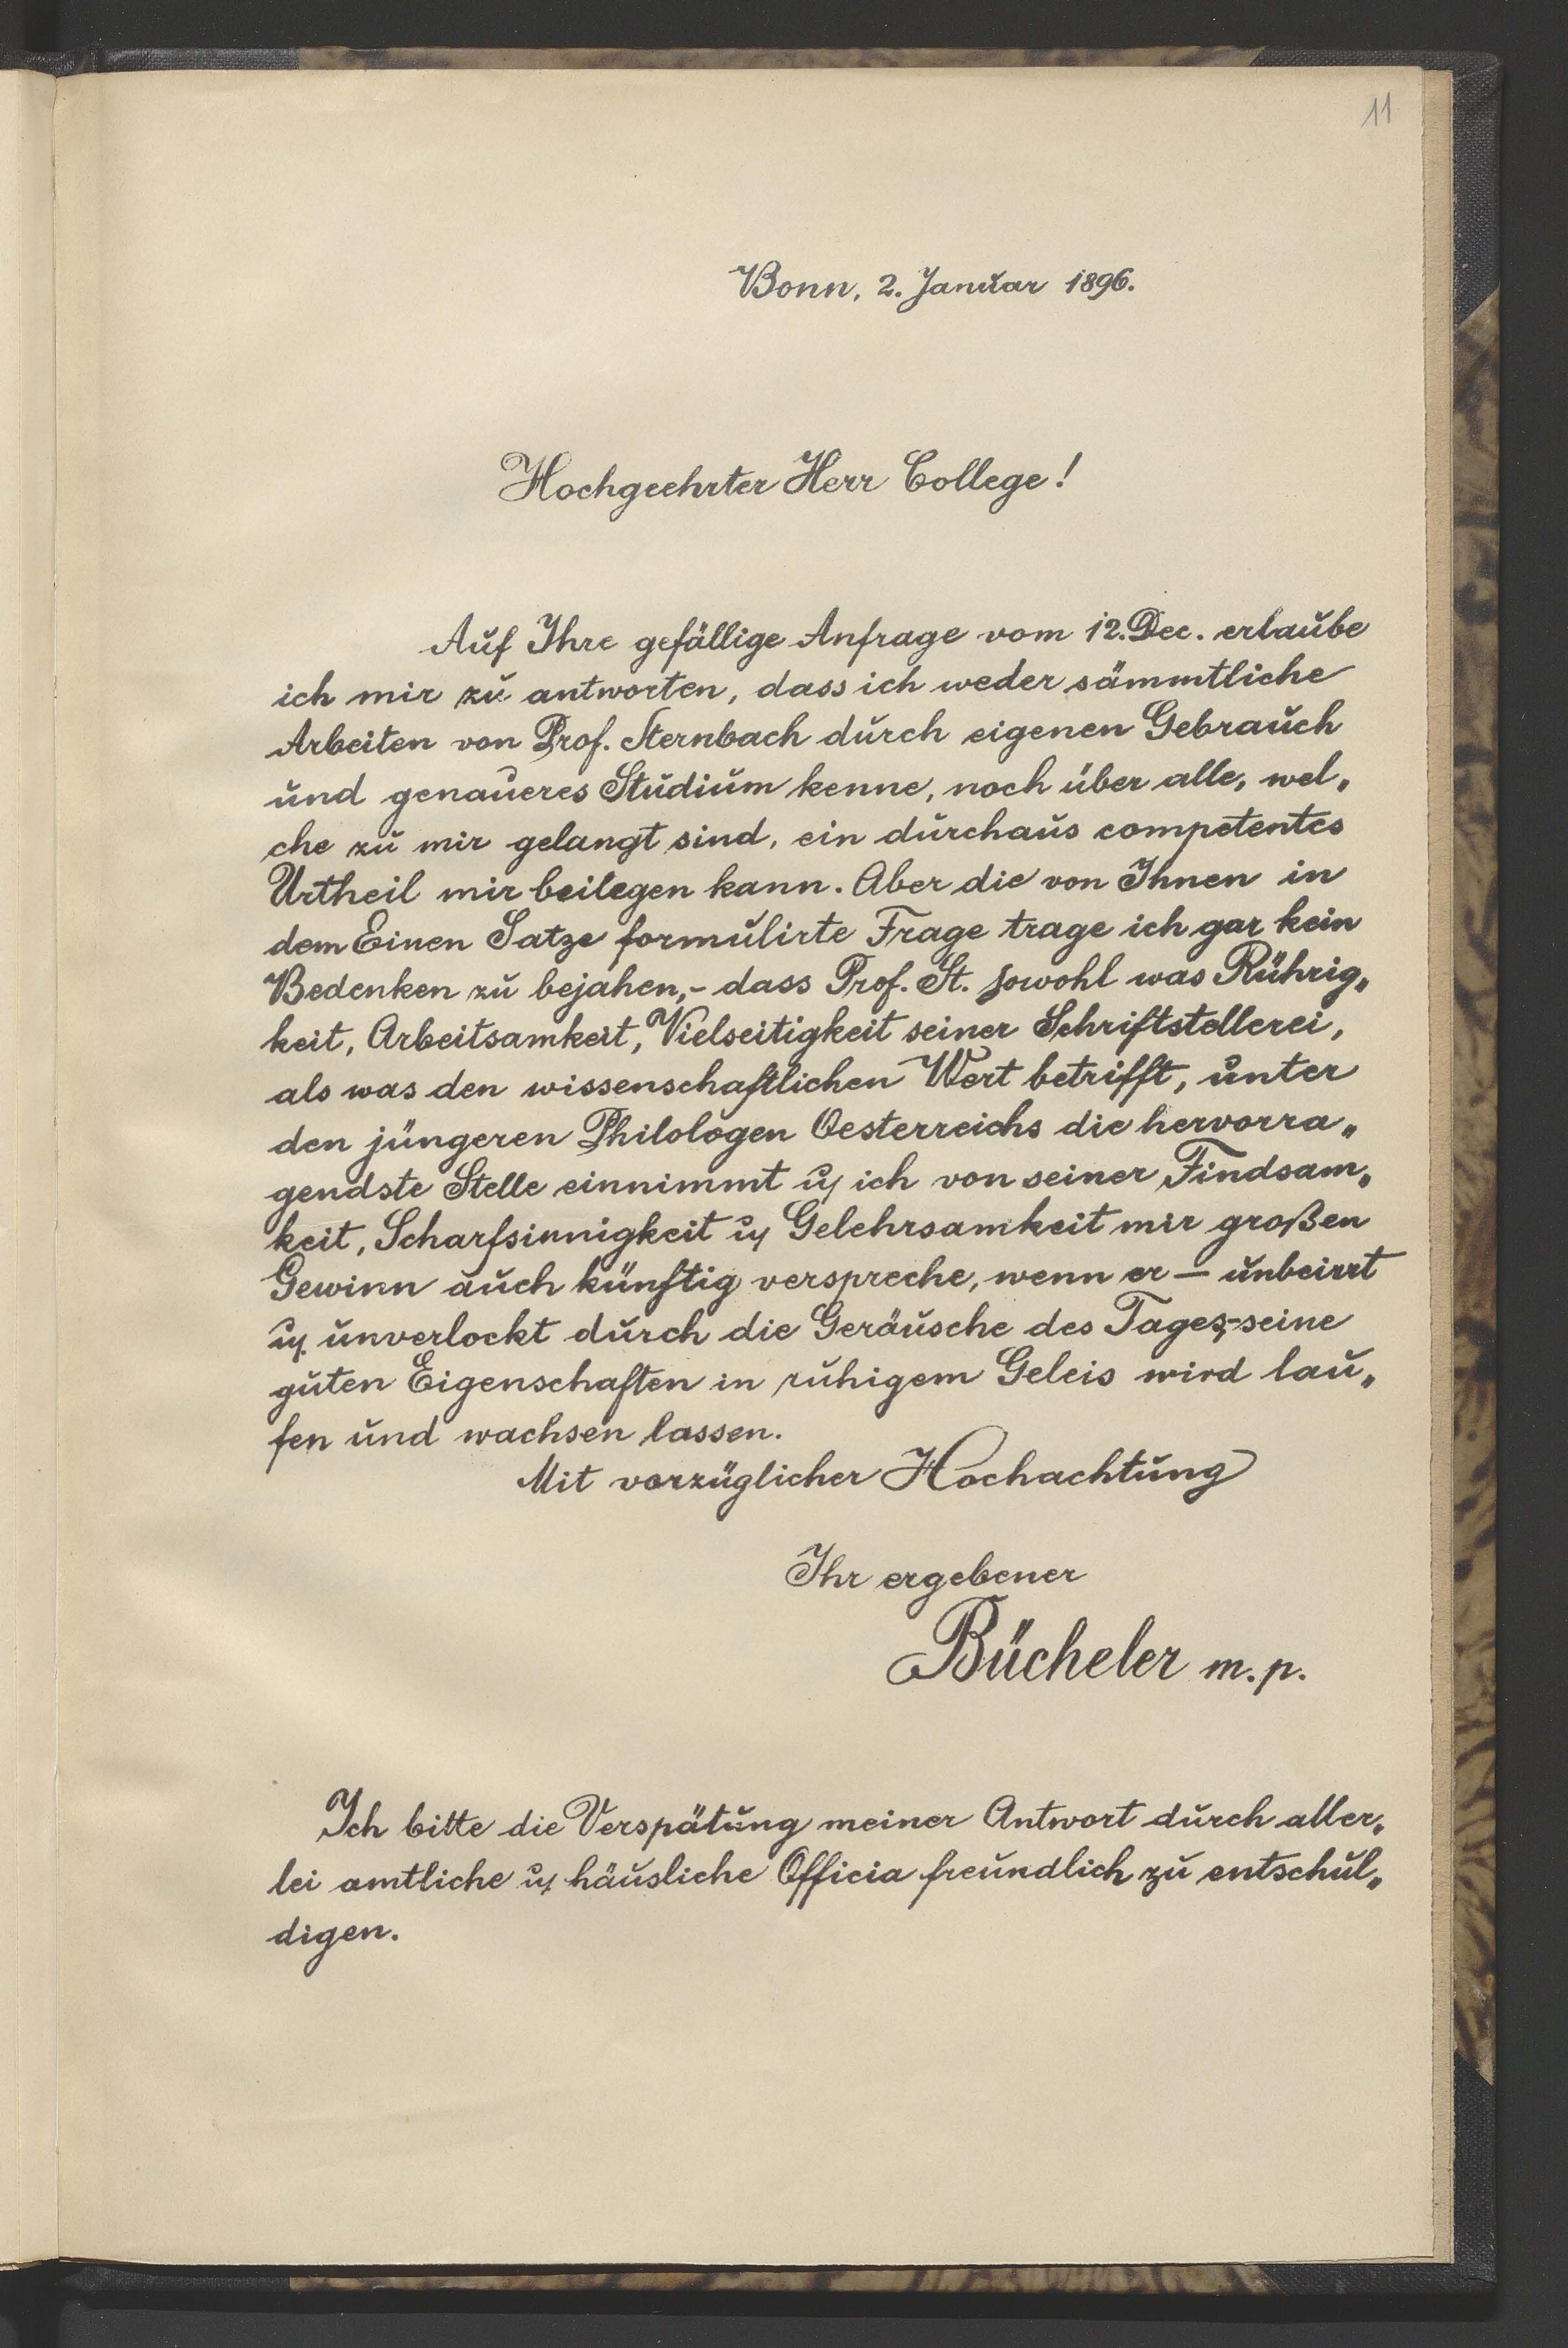 11
Bonn, 2. Januar 1896.
Hochgeehrter Herr College!
Auf Ihre gefällige Anfrage vom 12. Dec. erlaube
ich mir zu antworten, dass ich weder sämmtliche
Arbeiten von Prof. Sternbach durch eigenen Gebrauch
und genaueres Studium kenne, noch über alle, wel„
che zu mir gelangt sind, ein durchaus competentes
Urtheil mir beilegen kann. Aber die von Ihnen in
dem Einen Satze formulirte Frage trage ich gar kein
Bedenken zu bejahen, - dass Prof. St. sowohl was Rührig„
keit, Arbeitsamkeit, Vielseitigkeit seiner Schriftstellerei,
als was den wissenschaftlichen Wert betrifft, unter
den jüngeren Philologen Oesterreichs die hervorra„
gendste Stelle einnimmt u. ich von seiner Findsam„
keit, Scharfsinnigkeit u. Gelehrsamkeit mir großen
Gewinn auch künftig verspreche, wenn er — unbeirrt
u. unverlockt durch die Geräusche des Tages, - seine
guten Eigenschaften in ruhigem Geleis wird lau„
fen und wachsen lassen.
Mit vorzüglicher Hochachtung
Ihr ergebener
Bücheler m. p.
Ich bitte die Verspätung meiner Antwort durch aller„
lei amtliche u. häusliche Officia freundlich zu entschul„
digen.